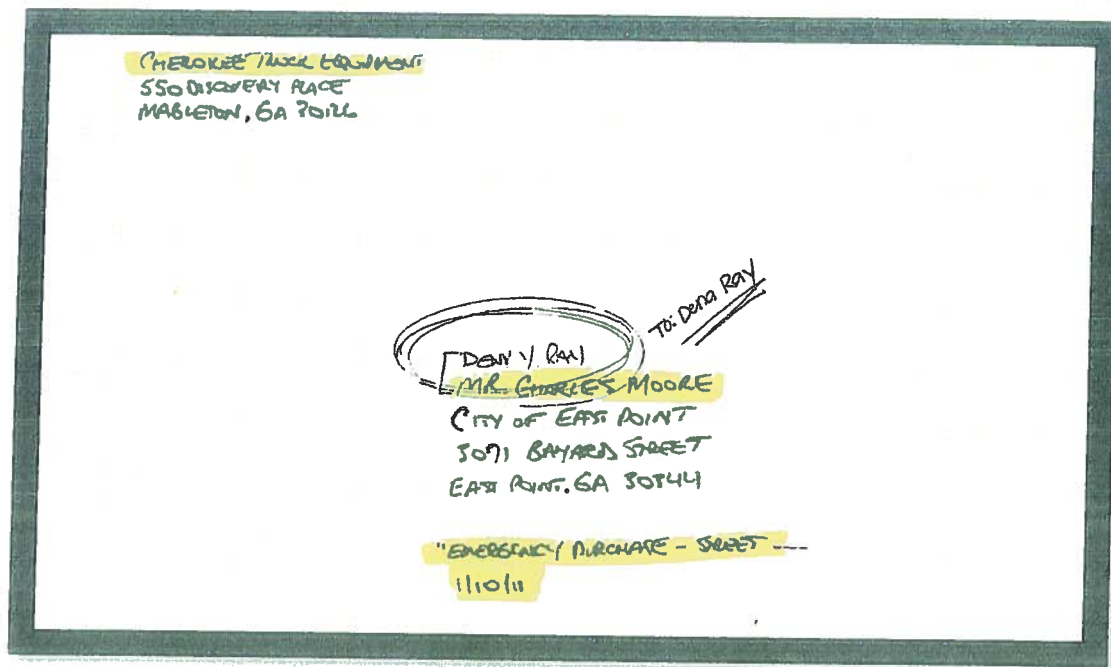 CHEROKEE TRUCK EQUIPMENT
550 DISCOVERY PLACE
MABLETON, GA 30126
To: Dena Ray
DENA RAY
MR. CHARLES MOORE
CITY OF EAST POINT
3071 BAYARD STREET
EAST POINT, GA 30344
"EMERGENCY PURCHASE - STREET
1/10/11